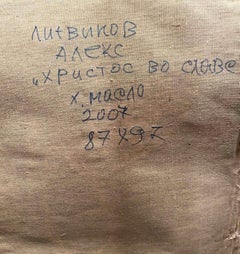 ЛИТВИНОВ
АЛЕКС
„ХРИСТОС ВО СЛАВЕ
Х. МАСЛО
2007
87X97